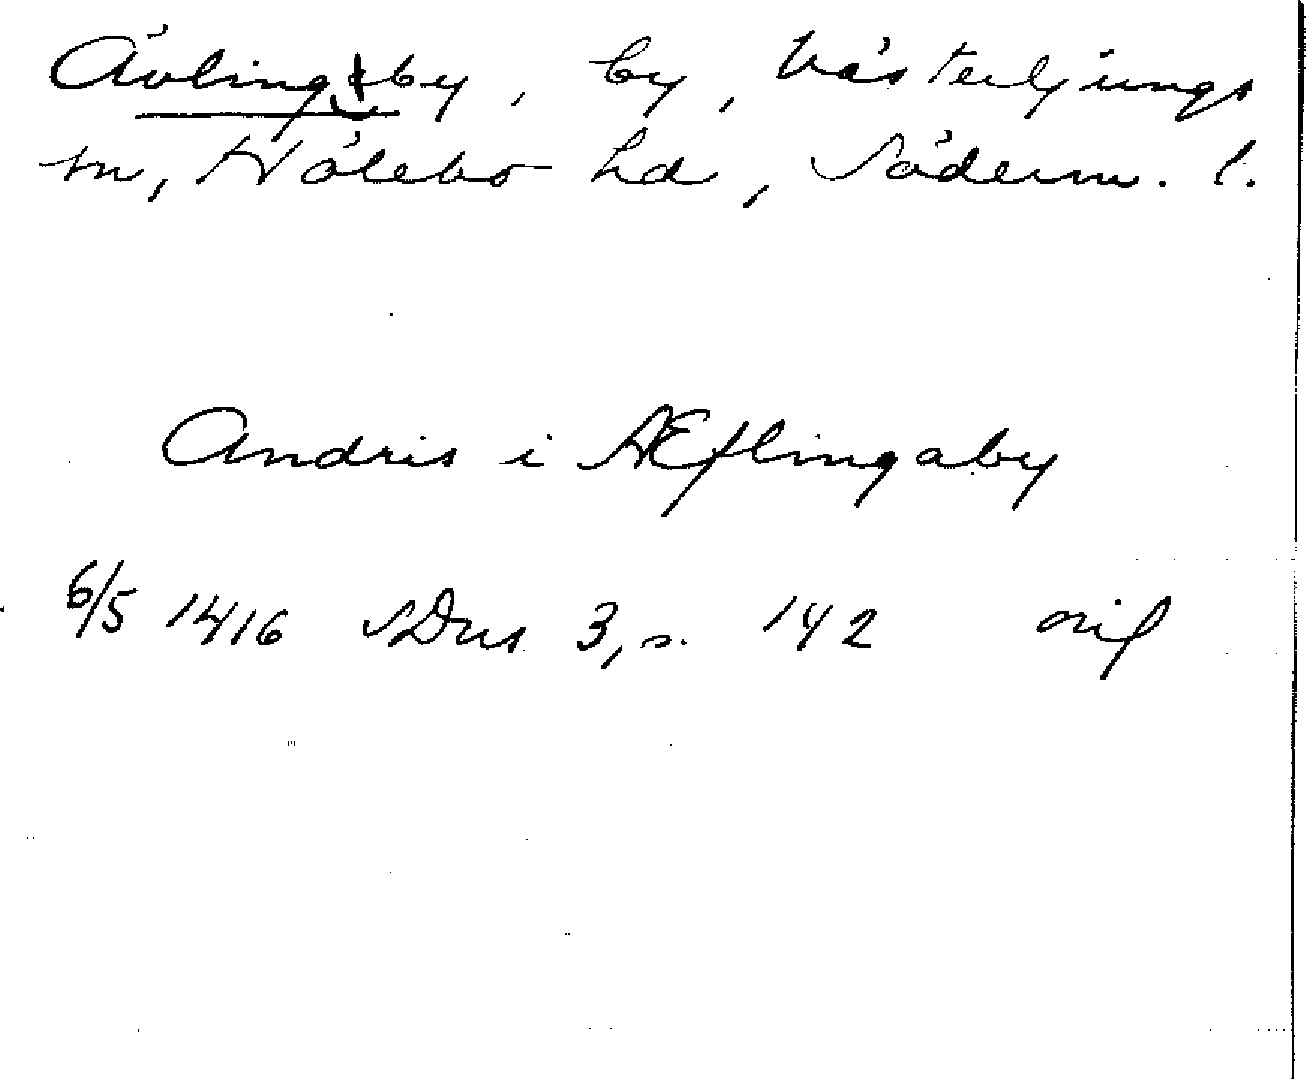 Ävlingsby, by, Västerljungs
sn, Hölebo hd, Söderm. l.
Andris i Æflingaby
6/5 1416 SDns 3, s. 142 orig